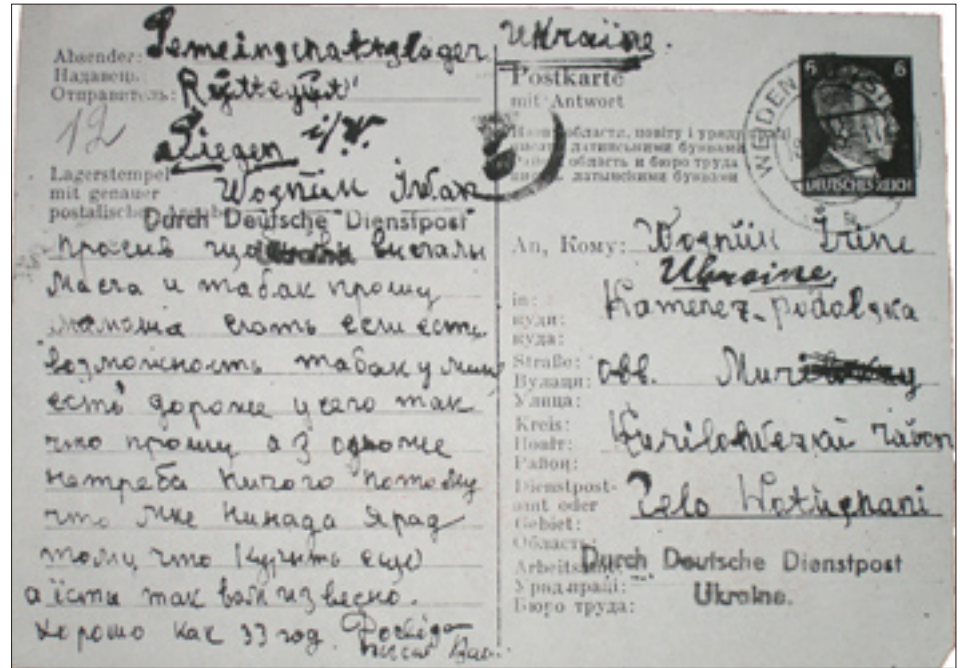 Absender:
Надавець:
Отправитель:
Gemeinschaftslager
12
i/W.
Siegen
Lagerstempel
mit genauer
postalischer
Wozniuk Iwan
Durch Deutsche Dienstpost
просив що вислали
масла и табак прошу
мамаша слать если есть
возможность табак у мине
есть дороже усего так
что прошу а з одьоже
нетреба ничого потому
что мне нинада я рад
тому что курить ещо
а їсти так вам извесно.
Хорошо как 33 год.
Ukraine.
Postkarte
mit Antwort
області, повіту і уряду праці
латинськими буквами
область и бюро труда
латынскими буквами
WEDEN
6 6
DEUTSCHES REICH
An, Кому: Wozniuk Irine
Ukraine,
in:
куди:
куда:
Kamenez-podolska
Straße:
Вулиця:
Улица:
obl.
Kreis:
Повіт:
Район:
Kurilowezkai raбon
Dienstpost-
amt oder
Gebiet:
Область:
Zelo
Arbeitsamt:
Уряд праці:
Бюро труда:
Durch Deutsche Dienstpost
Ukraine.